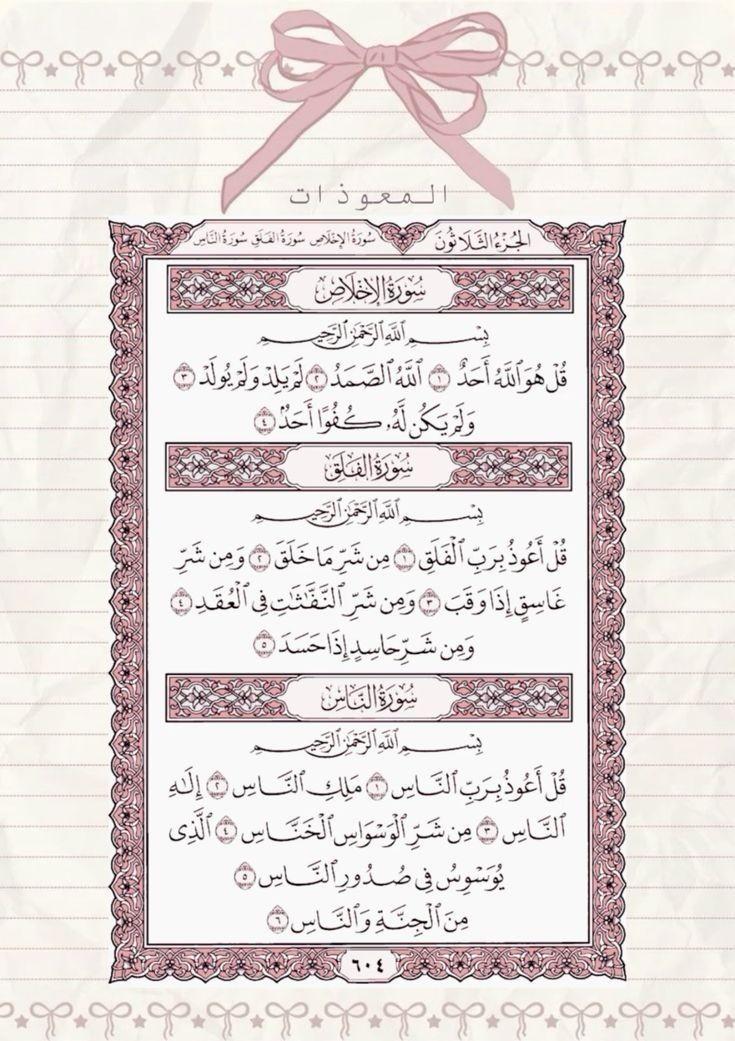 المعوذات
الجُزْءُ الثَّلَاثُونَ سُورَةُ الإِخْلَاصِ سُورَةُ الفَلَقِ سُورَةُ النَّاسِ
سُورَةُ الإِخْلَاصِ
بِسْمِ ٱللَّهِ ٱلرَّحْمَٰنِ ٱلرَّحِيمِ
قُلْ هُوَ ٱللَّهُ أَحَدٌ ١ ٱللَّهُ ٱلصَّمَدُ ٢ لَمْ يَلِدْ وَلَمْ يُولَدْ ٣
وَلَمْ يَكُن لَّهُۥ كُفُوًا أَحَدٌۢ ٤
سُورَةُ الفَلَقِ
بِسْمِ ٱللَّهِ ٱلرَّحْمَٰنِ ٱلرَّحِيمِ
قُلْ أَعُوذُ بِرَبِّ ٱلْفَلَقِ ١ مِن شَرِّ مَا خَلَقَ ٢ وَمِن شَرِّ
غَاسِقٍ إِذَا وَقَبَ ٣ وَمِن شَرِّ ٱلنَّفَّٰثَٰتِ فِى ٱلْعُقَدِ ٤
وَمِن شَرِّ حَاسِدٍ إِذَا حَسَدَ ٥
سُورَةُ النَّاسِ
بِسْمِ ٱللَّهِ ٱلرَّحْمَٰنِ ٱلرَّحِيمِ
قُلْ أَعُوذُ بِرَبِّ ٱلنَّاسِ ١ مَلِكِ ٱلنَّاسِ ٢ إِلَٰهِ
ٱلنَّاسِ ٣ مِن شَرِّ ٱلْوَسْوَاسِ ٱلْخَنَّاسِ ٤ ٱلَّذِى
يُوَسْوِسُ فِى صُدُورِ ٱلنَّاسِ ٥
مِنَ ٱلْجِنَّةِ وَٱلنَّاسِ ٦
٦٠٤